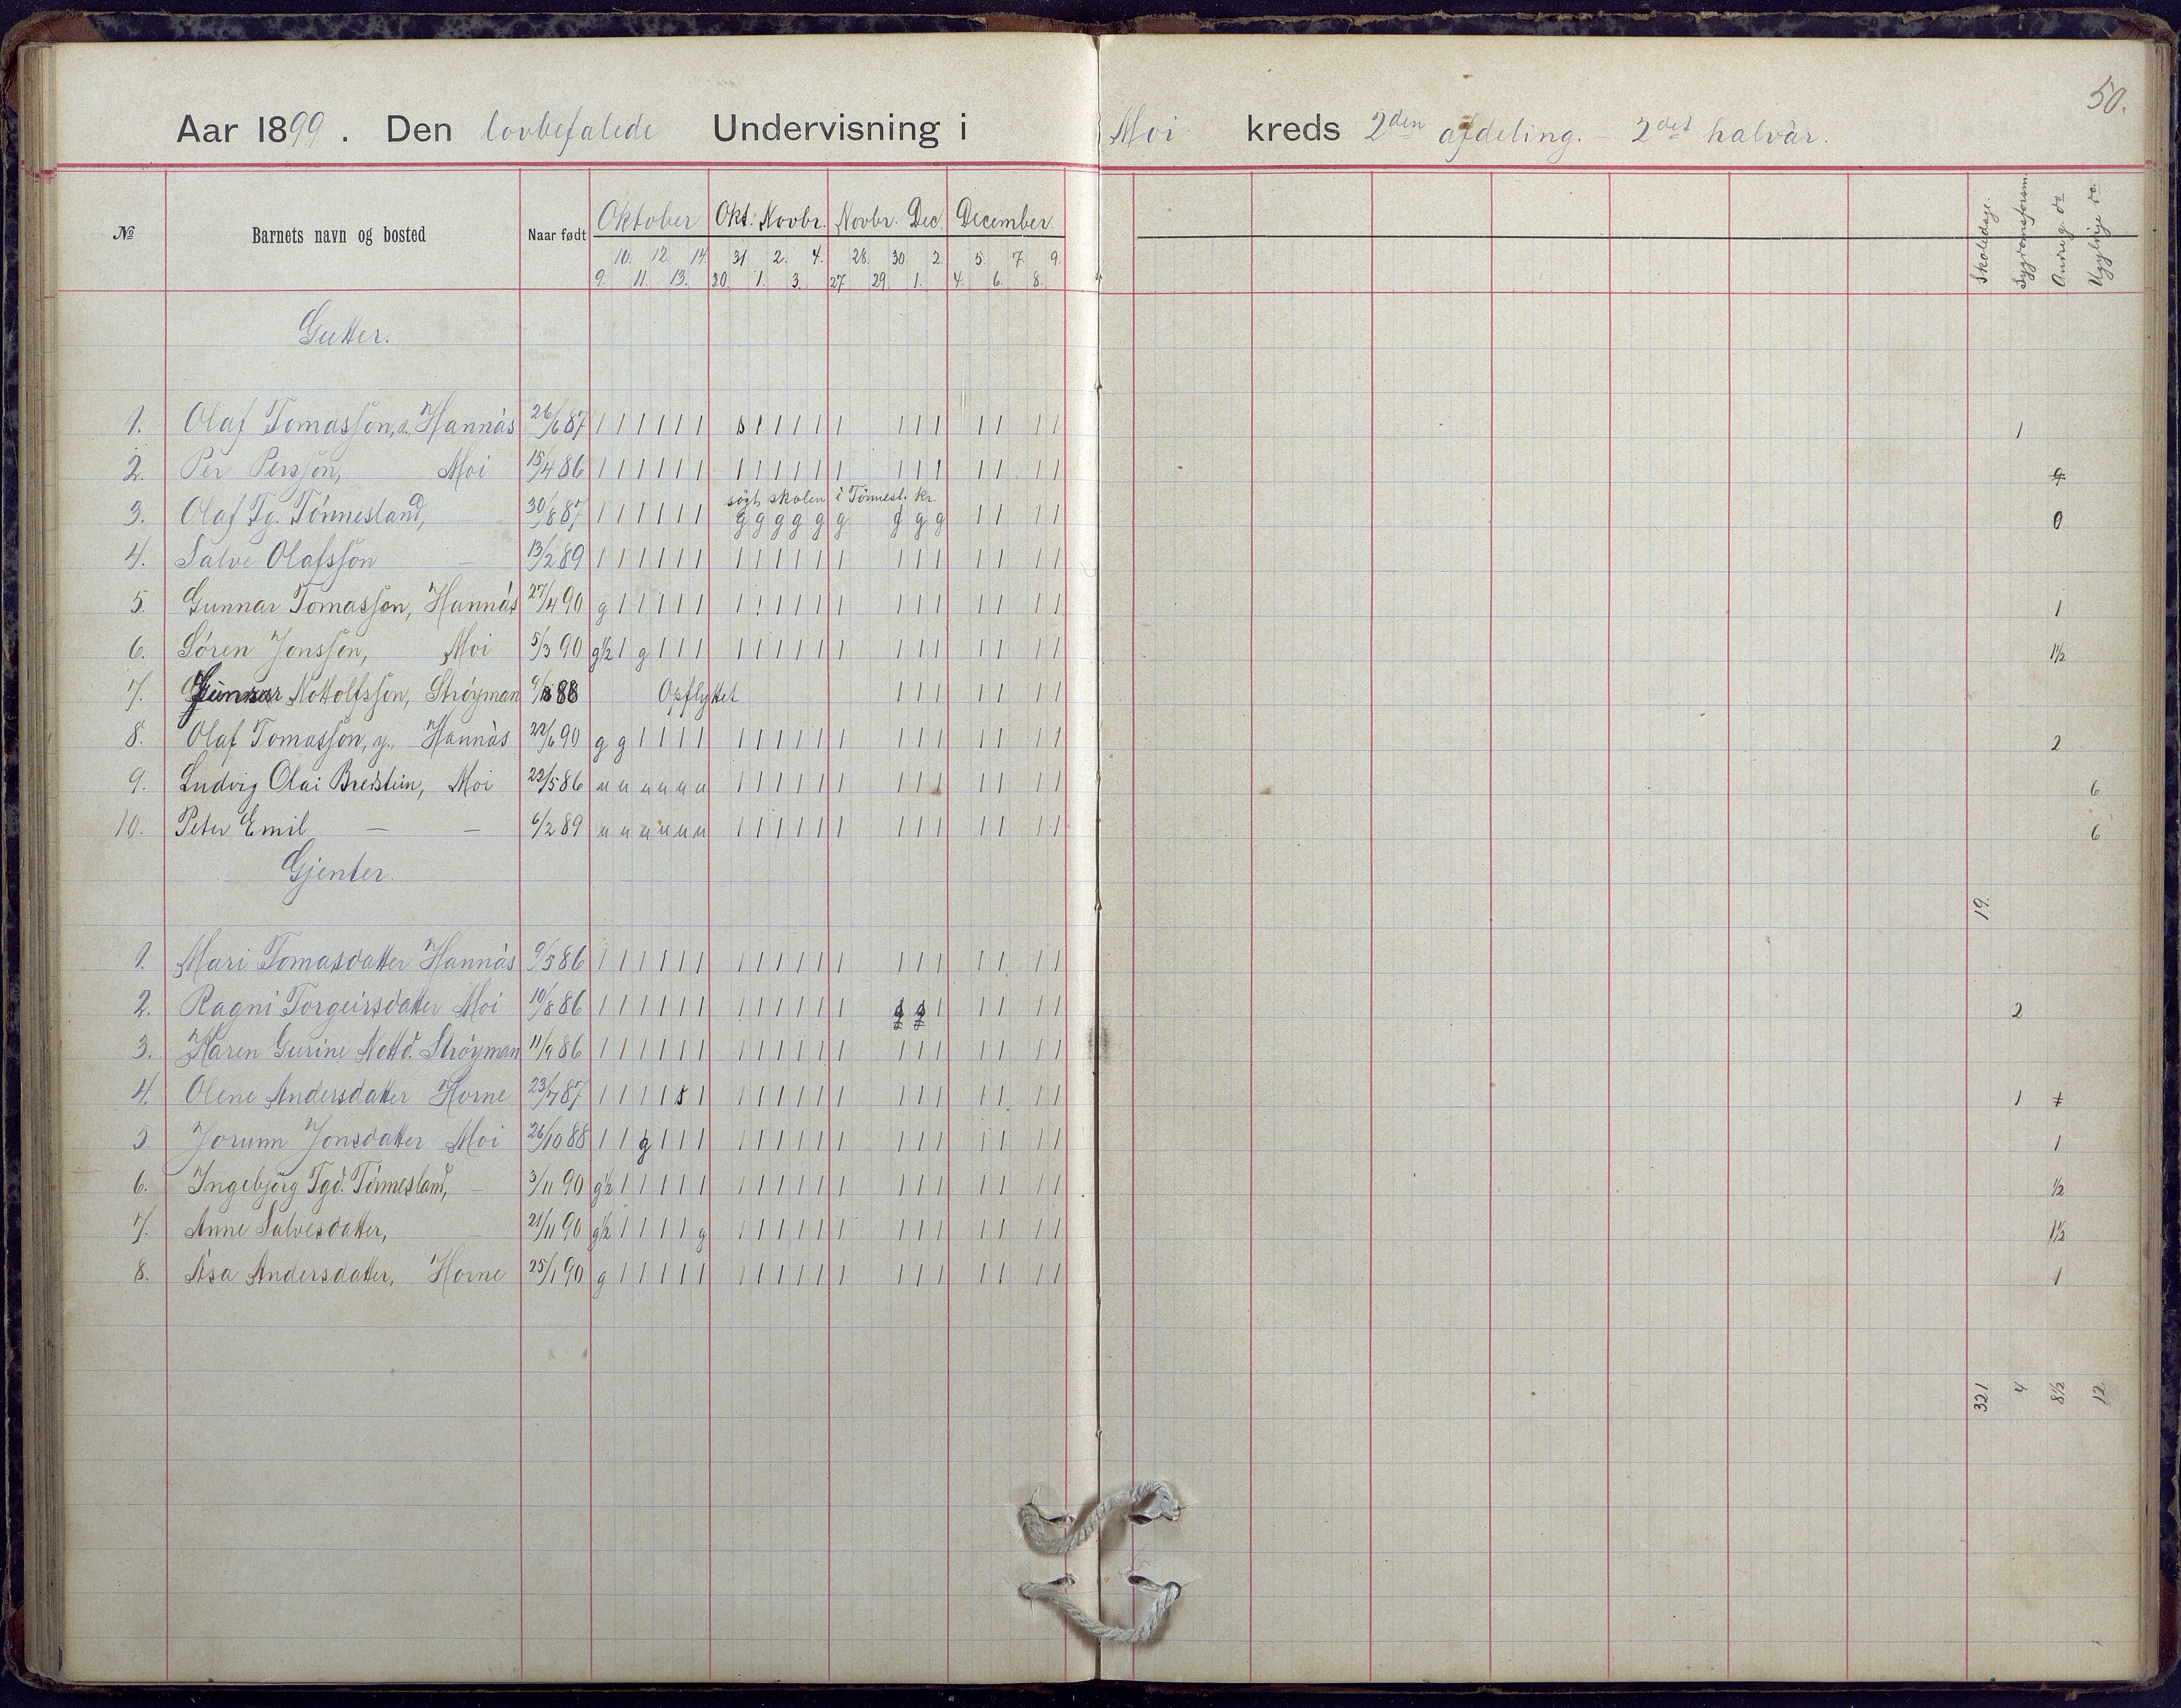 50.
Aar 1899. Den lovbefalede Undervisning i Moi kreds 2den afdeling. – 2det halvår.
№ Barnets navn og bosted Naar født Oktober Okt. Novbr. Novbr. Dec. December. Skoledage. Sygdomsforsøm. Andre g. do Ugyldige do.
10. 12. 14. 31 2. 4. 28. 30 2. 5. 7. 9.
9. 11. 13. 30. 1. 3. 27 29 1. 4. 6. 8.
Gutter.
1. Olaf Tomassøn, æ., Hannås 26/6 87 1 1 1 1 1 1 s 1 1 1 1 1 1 1 1 1 1 1 1 1
2. Per Perssøn, Moi 15/4 86 1 1 1 1 1 1 1 1 1 1 1 1 1 1 1 1 1 1 1
søgt skolen i Tønnesl. kr.
3. Olaf Tg. Tønnesland, 30/8 87 1 1 1 1 1 1 g g g g g g g g g 1 1 1 1 0
4. Salve Olafssøn – 13/2 89 1 1 1 1 1 1 1 1 1 1 1 1 1 1 1 1 1 1 1
5. Gunnar Tomassøn, Hannås 27/4 90 g 1 1 1 1 1 1 1 1 1 1 1 1 1 1 1 1 1 1 1
6. Søren Jonssøn, Moi 5/3 90 g½ 1 g 1 1 1 1 1 1 1 1 1 1 1 1 1 1 1 1 1½
7. Gunnar Nottolfssøn, Strøyman 88 Opflyttet 1 1 1 1 1 1 1
8. Olaf Tomassøn, y., Hannås 22/6 90 g g 1 1 1 1 1 1 1 1 1 1 1 1 1 1 1 1 1 2
9. Ludvig Olai Breistein, Moi 22/5 86 u u u u u u 1 1 1 1 1 1 1 1 1 1 1 1 1 6
10. Peter Emil – – 6/2 89 u u u u u u 1 1 1 1 1 1 1 1 1 1 1 1 1 6
Gjenter.
19.
1. Mari Tomasdatter Hannås 9/5 86 1 1 1 1 1 1 1 1 1 1 1 1 1 1 1 1 1 1 1
2. Ragni Torgeirsdatter Moi 10/8 86 1 1 1 1 1 1 1 1 1 1 1 1 s s 1 1 1 1 1 2
3. Karen Gurine Nottd. Strøyman 11/9 86 1 1 1 1 1 1 1 1 1 1 1 1 1 1 1 1 1 1 1
4. Olene Andersdatter Horne 23/7 87 1 1 1 1 s 1 1 1 1 1 1 1 1 1 1 1 1 1 1 1 1
5. Jorunn Jonsdatter Moi 26/10 88 1 1 g 1 1 1 1 1 1 1 1 1 1 1 1 1 1 1 1 1
6. Ingebjørg Tgd. Tønnesland, – 3/11 90 g½ 1 1 1 1 1 1 1 1 1 1 1 1 1 1 1 1 1 1 ½
7. Anne Salvesdatter, – 21/11 90 g½ 1 1 1 1 g 1 1 1 1 1 1 1 1 1 1 1 1 1 1½
8. Åsa Andersdatter, Horne 25/1 90 g 1 1 1 1 1 1 1 1 1 1 1 1 1 1 1 1 1 1 1
321. 4 8½ 12.